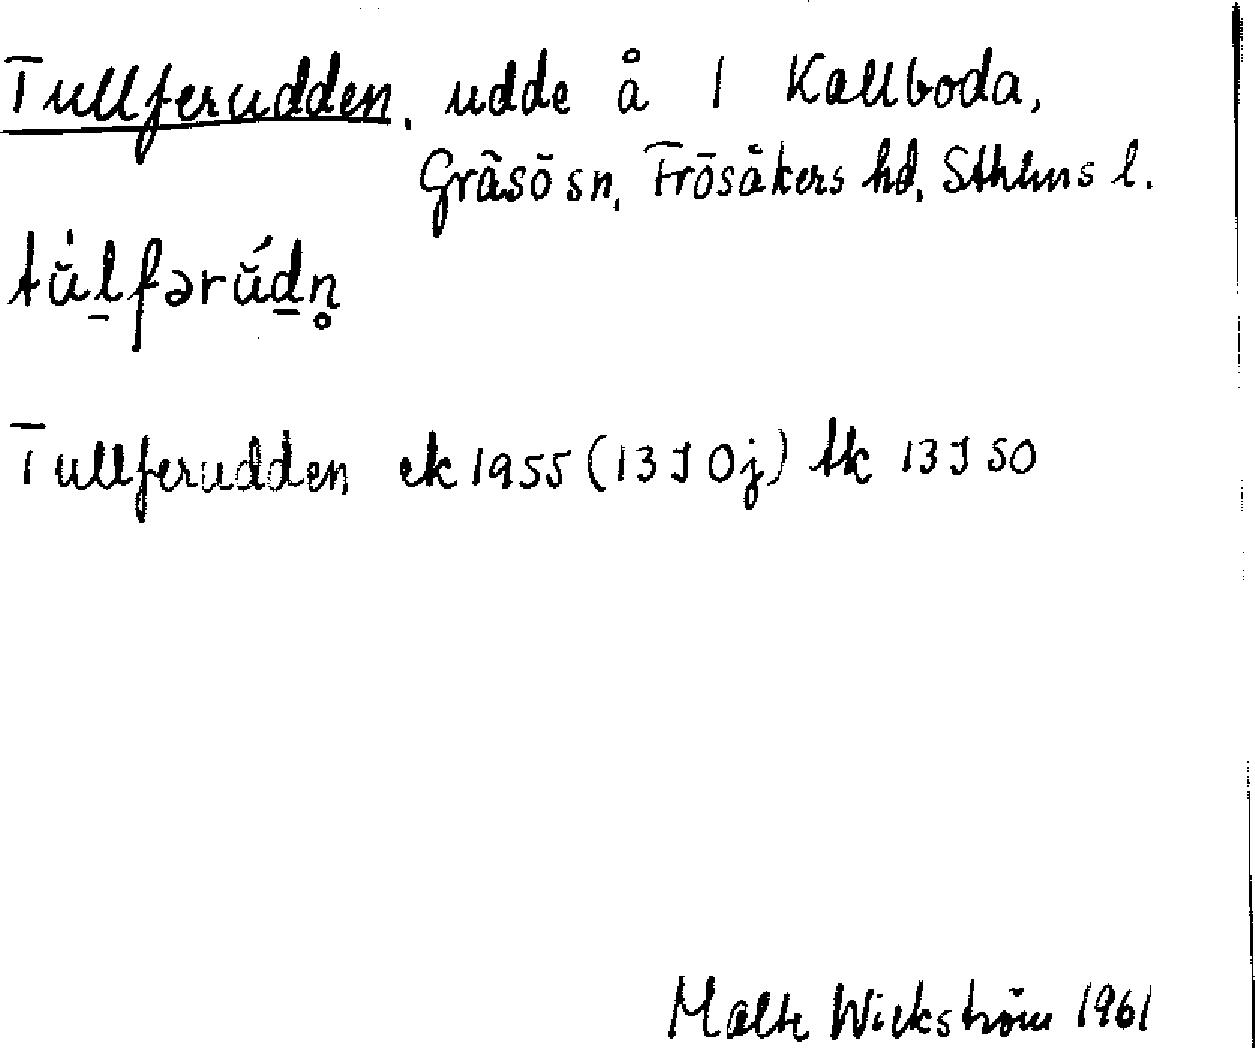 Tullferudden, udde å 1 Kallboda,
Gräsö sn, Frösåkers hd, Sthlms l.
tŭ̀l̲fərŭ́d̲n̥
Tullferudden ek 1955 (13 I 0j) tk 13 I SO
Malte Wickström 1961